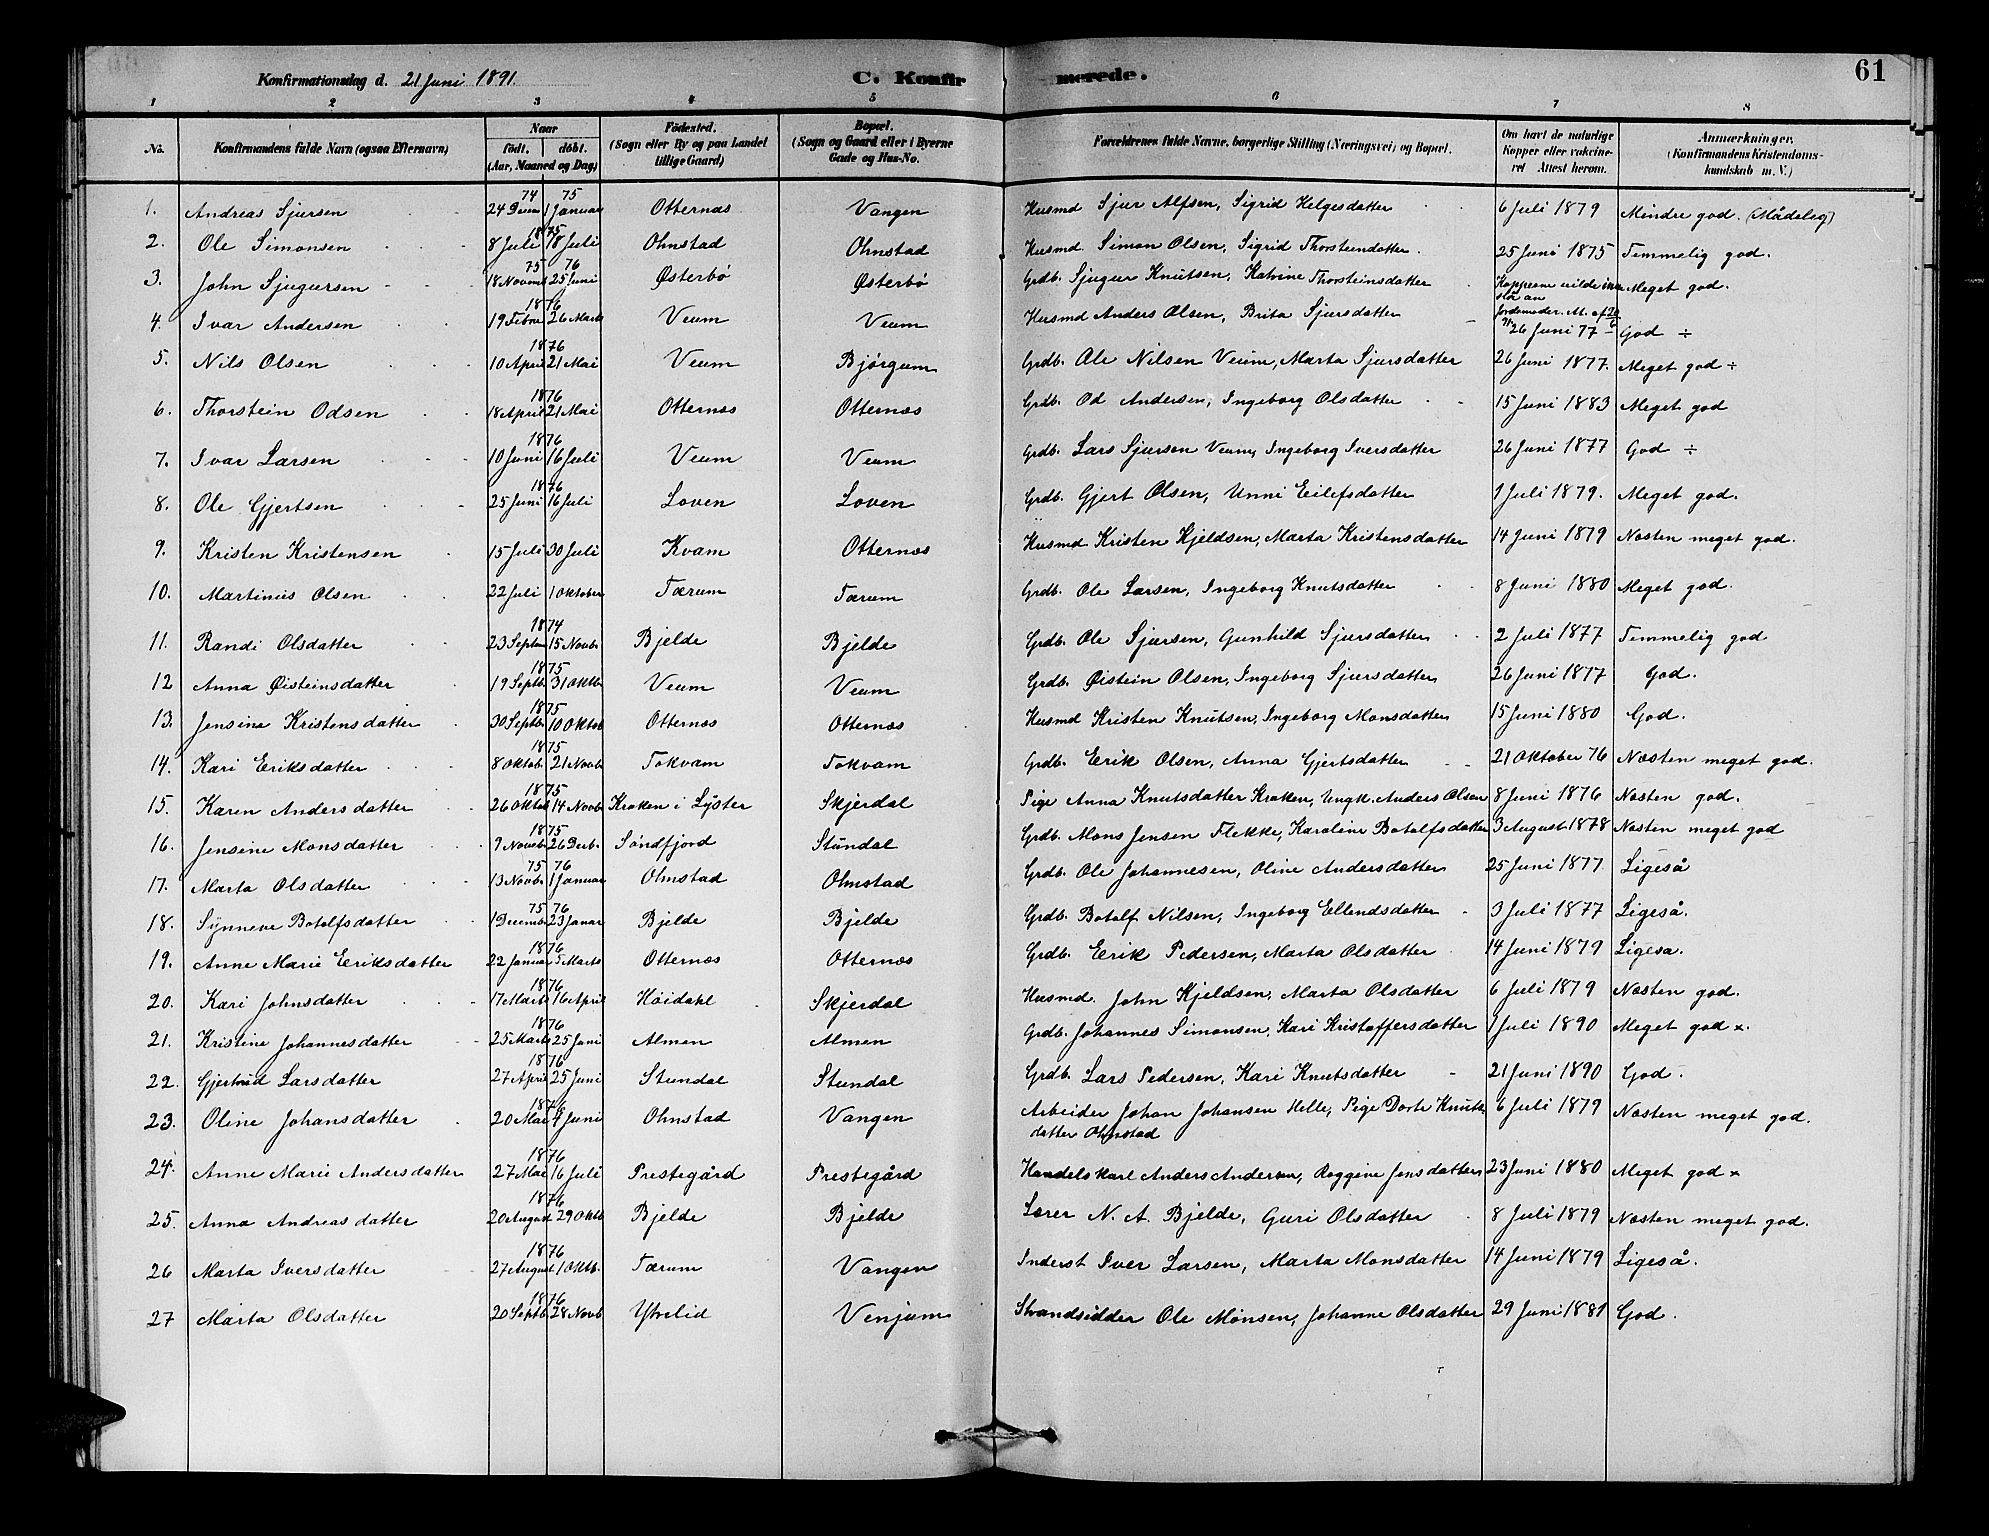 61
Konfirmationsdag d. 21 Juni 1891. C. Konfirmerede.
1 2 3 4 5 6 7 8
No. Konfirmandens fulde Navn (ogsaa Efternavn) Naar født. døbt. (Aar, Maaned og Dag) Fødested. (Sogn eller By og paa Landet tillige Gaard) Bopæl. (Sogn og Gaard eller i Byerne Gade og Hus-No. Forældrenes fulde Navne, borgerlige Stilling (Næringsvei) og Bopæl. Om havt de naturlige Kopper eller vakcineret Attest herom. Anmærkninger. (Konfirmandens Kristendomskundskab m. V.)
74 75
1. Andreas Sjursen 24 Decem 1 Januar Otternæs Vangen Husmd Sjur Alfsen, Sigrid Helgesdatter 6 Juli 1879 Mindre god. (Mådelig)
1875
2. Ole Simonsen 8 Juli 18 Juli Ohnstad Ohnstad Husmd Simon Olsen, Sigrid Thorsteindatter. 25 Juni 1875 Temmelig god.
75 76
3. John Sjugursen 18 Novemb 25 Juni Østerbø Østerbø Grdb. Sjugur Knutsen, Katrine Thorsteinsdatter Kopperne vilde ikke slå an Meget god.
1876
4. Ivar Andersen 19 Febru 26 Marts Veum Veum Husmd Anders Olsen, Brita Sjursdatter Jordemoder. At. af 20/6 91 26 Juni 77 God ÷
1876
5. Nils Olsen 10 April 21 Mai Veum Bjørgum Grdb. Ole Nilsen Veum, Marta Sjursdatter 26 Juni 1877. Meget god ÷
1876
6. Thorstein Odsen 18 April 21 Mai Otternæs Otternæs Grdb. Od Andersen, Ingeborg Olsdatter 15 Juni 1883 Meget god
1876
7. Ivar Larsen 10 Juni 16 Juli Veum Veum Grdb. Lars Sjursen Veum, Ingeborg Iversdatter 26 Juni 1877 God ÷
1876
8. Ole Gjertsen 25 Juni 16 Juli Loven Loven Grdb. Gjert Olsen, Unni Eilefsdatter 1 Juli 1879. Meget god.
9. Kristen Kristensen 15 Juli 30 Juli Kvam Otternæs Husmd Kristen Kjeldsen, Marta Kristensdatter 14 Juni 1879 Næsten meget god.
10. Martinus Olsen 22 Juli 1 Oktober Tærum Tærum Grdb. Ole Larsen, Ingeborg Knutsdatter 8 Juni 1880 Meget god.
1874
11. Randi Olsdatter 23 Septem 15 Novb. Bjelde Bjelde Grdb. Ole Sjursen, Gunhild Sjursdatter 2 Juli 1877 Temmelig god
1875
12 Anna Øisteinsdatter 19 Septb. 31 Oktb. Veum Veum Grdb. Øistein Olsen, Ingeborg Sjursdatter 26 Juni 1877 God.
1875
13. Jensine Kristensdatter 30 Septb 10 Oktob Otternæs Otternæs Husmd Kristen Knutsen, Ingeborg Monsdatter 15 Juni 1880 God.
1875
14. Kari Eriksdatter 8 Oktob. 21 Novb. Tokvam Tokvam Grdb. Erik Olsen, Anna Gjertsdatter 21 Oktober 76 Næsten meget god.
1875
15. Karen Andersdatter 26 Oktob 14 Novb. Kroken i Lyster Skjerdal Pige Anna Knutsdatter Kroken, Ungk. Anders Olsen 8 Juni 1876 Næsten god.
1875
16. Jensine Monsdatter 9 Noveb 26 Decb. Søndfjord Stundal Grdb. Mons Jensen Flekke, Karoline Botolfsdatter 3 August 1878 Næsten meget god
75 76
17. Marta Olsdatter 13 Novb. 1 Januar Ohnstad Ohnstad Grdb. Ole Johannesen, Oline Andersdatter 25 Juni 1877. Ligeså
75 76
18. Synneve Botolfsdatter 1 Decemb 23 Januar Bjelde Bjelde Grdb. Botolf Nilsen, Ingeborg Ellendsdatter 3 Juli 1877 Ligeså.
1876
19. Anne Marie Eriksdatter 22 Januar 5 Marts Otternæs Otternæs Grdb. Erik Pedersen, Marta Olsdatter 14 Juni 1879 Ligesa.
1876
20. Kari Johnsdatter 17 Marts 16 April Høidahl Skjerdal Husmd. John Kjeldsen, Marta Olsdatter 6 Juli 1879 Næsten god.
1876
21. Kristine Johannesdatter 25 Marts 25 Juni Almen Almen Grdb. Johannes Simonsen, Kari Kristoffersdatter 1 Juli 1890 Meget god ×.
1876
22. Gjertrud Larsdatter 27 April 25 Juni Stundal Stundal Grdb. Lars Pedersen, Kari Knutsdatter 21 Juni 1890 God.
1876
23. Oline Johansdatter 20 Mai 4 Juni Ohnstad Vangen Arbeider Johan Johansen Helle, Pige Dorte Knuts 6 Juli 1879 Næsten meget god.
datter Ohnstad
1876
24. Anne Marie Andersdatter 27 Mai 16 Juli Prestegård Prestegård Handelskarl Anders Andersen, Roggine Jensdatter 23 Juni 1880 Meget god ×
1876
25. Anna Andreasdatter 20 August 29 Oktb Bjelde Bjelde Lærer N. A. Bjelde, Guri Olsdatter 8 Juli 1879 Næsten meget god.
1876
26 Marta Iversdatter 27 August 1 Oktb. Tærum Vangen Inderst Iver Larsen, Marta Monsdatter 14 Juni 1879 Ligeså.
1876
27 Marta Olsdatter 20 Septb 28 Novb Ytrelid Venjum Strandsidder Ole Monsen, Johanne Olsdatter 29 Juni 1881 God.